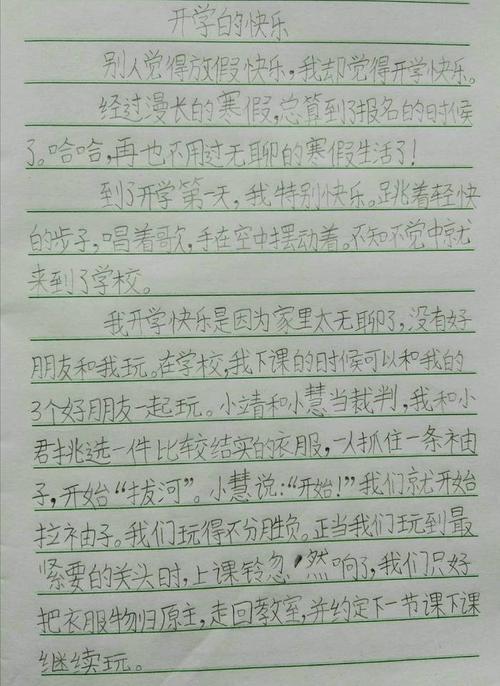 开学的快乐
别人觉得放假快乐,我却觉得开学快乐。
经过漫长的寒假,总算到了报名的时候
了。哈哈,再也不用过无聊的寒假生活了!
到了开学第一天,我特别快乐。跳着轻快
的步子,唱着歌,手在空中摆动着。不知不觉中就
来到了学校。
我开学快乐是因为家里太无聊了,没有好
朋友和我玩。在学校,我下课的时候可以和我的
3个好朋友一起玩。小靖和小慧当裁判,我和小
君挑选一件比较结实的衣服,一人抓住一条袖
子,开始“拔河”。小慧说:“开始!”我们就开始
拉袖子。我们玩得不分胜负。正当我们玩到最
紧要的关头时,上课铃忽然响了,我们只好
把衣服物归原主,走回教室,并约定下一节课下课
继续玩。